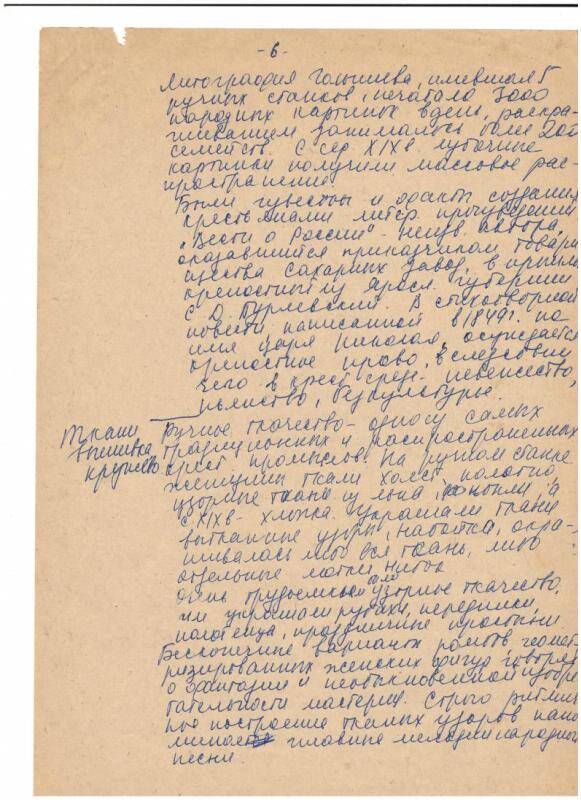 -6-
Литография Голышева, имевшая 5
ручных станков, печатала 3000
народных картинок в день, раскра-
шиванием занималось более 200
семейств. С сер XIXв. лубочные
картинки получили массовое рас-
пространение.
Были известны и факты создания
крестьянами литер. произведений
"Вести о России" - неизв. автора,
оказавшийся приказчиком товари
щества сахарных завод, в прошл
крепостных Яросл. губернии
С.Д. Пурлевский. В стихотворной
повести написанной в 1849г. на
имя царя Николая, осуждается
крепостное право, вследствии
чего в крест. среде - невежество,
пьянство, бескультурье.
Ткани
вышивка
кружево
Ручное ткачество - одно из самых
традиционных и распространенных
крест. промыслов. На ручном станке
женщины ткали холст, полотно,
узорные ткани из льна, конопли, а
с XIXв - хлопка. Украшали ткани
вытканные узоры, набойка, окра-
шивалась либо вся ткань, либо
отдельные мотки ниток
Очень трудоемкое узорное ткачество,
им украшали рубахи, передники,
полотенца, праздничные простыни.
Бесконечные варианты ромбов, геомет
ризированных женских фигур говорят
о фантазии и необыкновенной изобре
тательности мастериц. Строго ритмич
ное построение тканых узоров напо
минает плавные мелодии народной
песни.